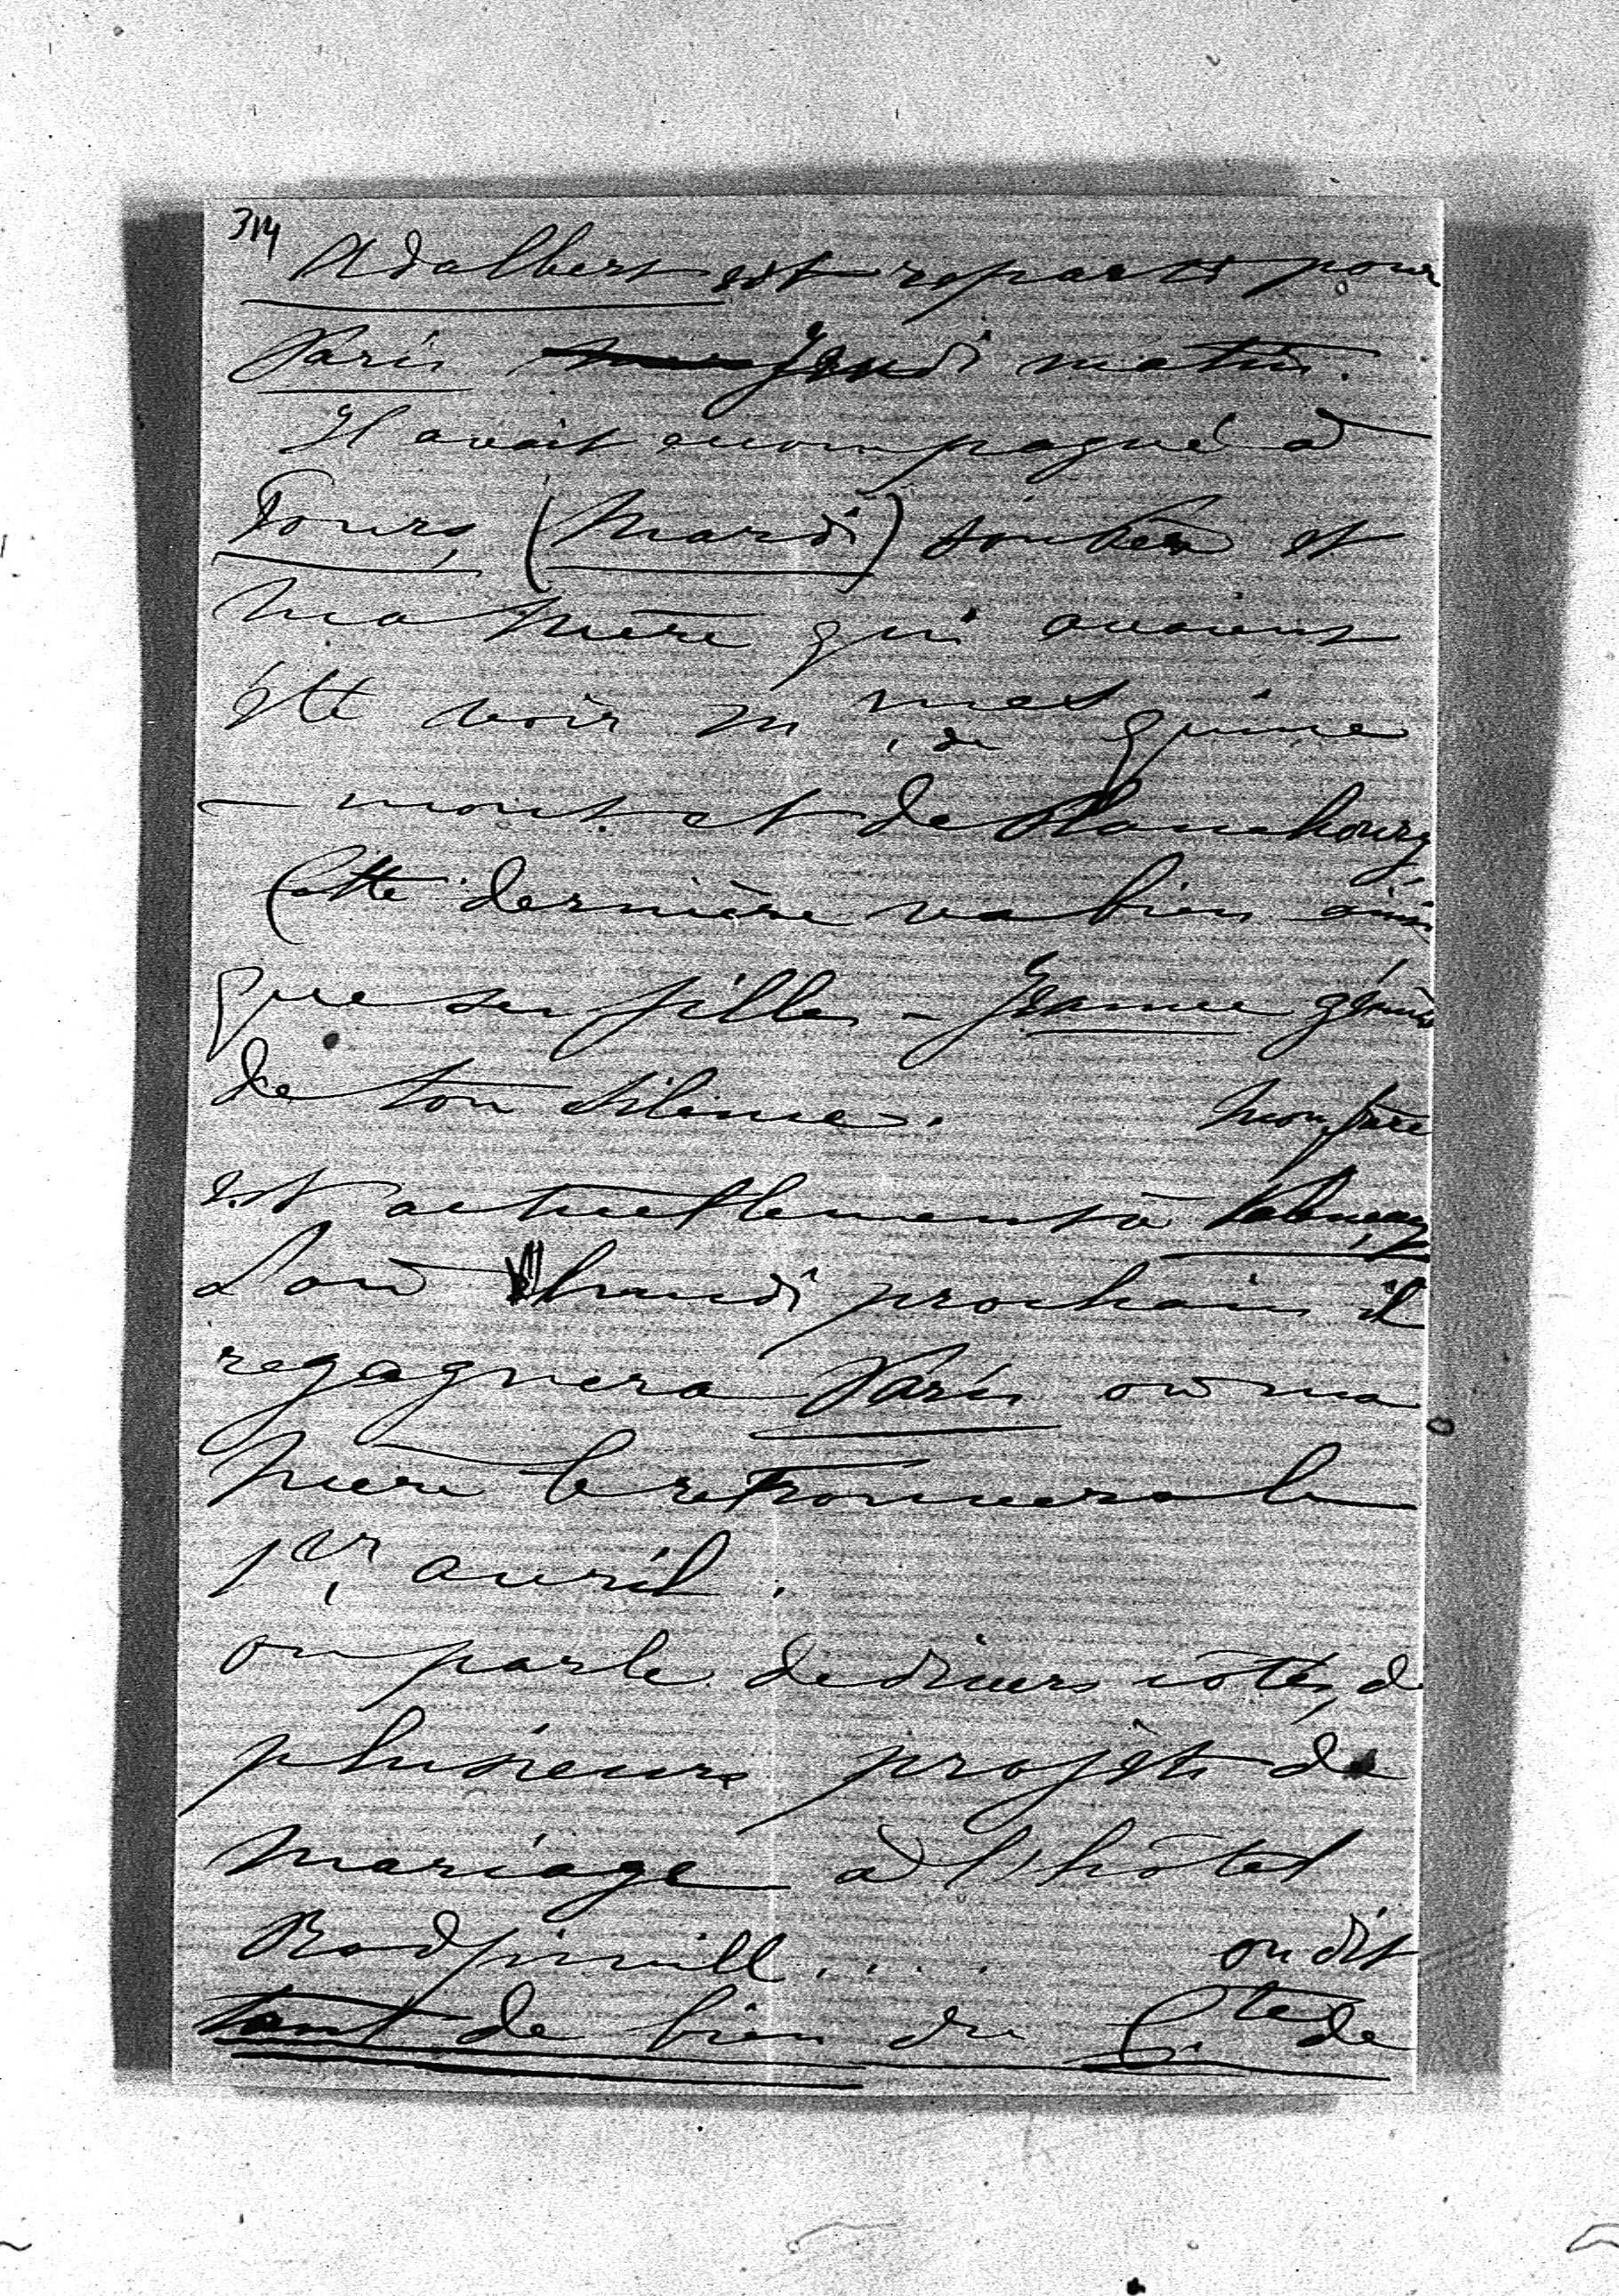 314
Adalbert est reparti pour
Paris Jeudi matin.
Il avait accompagné à
Tours, (Mardi) et
ma Mère qui avaient
été voir M mes de Quine
- mont et de Blanc bourg
Cette dernière va bien ainsi
que ses filles - Jeanne gémit
de ton silence. Mon père
est actuellement à Valençay
d'où lundi prochain il
regagnera Paris où ma
mère le retrouvera le
1er avril.
on parle de divers côtés, de
plusieurs projets de
mariage à l'hôtel
on dit
tant de bien du Cte de